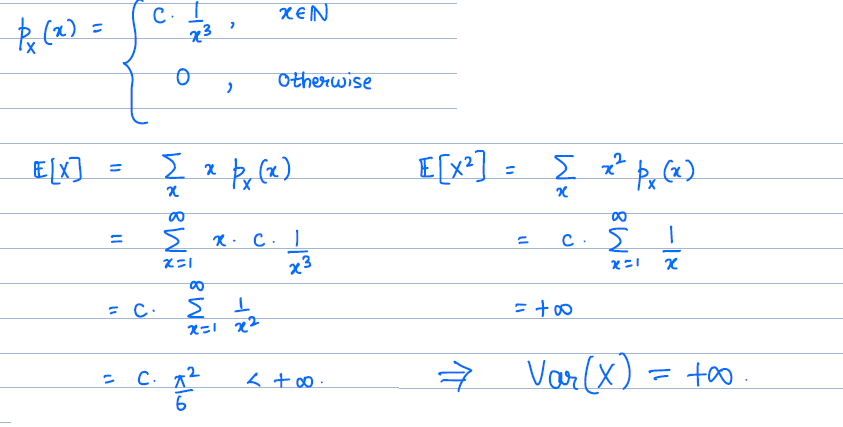 p_X(x) = { C · 1/x³ , x∈ℕ
0 , otherwise
𝔼[X] = Σ_x x p_X(x)
= Σ_{x=1}^{∞} x · C · 1/x³
= C · Σ_{x=1}^{∞} 1/x²
= C · π²/6 < +∞ .
𝔼[X²] = Σ_x x² p_X(x)
= C · Σ_{x=1}^{∞} 1/x
= +∞
⇒ Var(X) = +∞ .